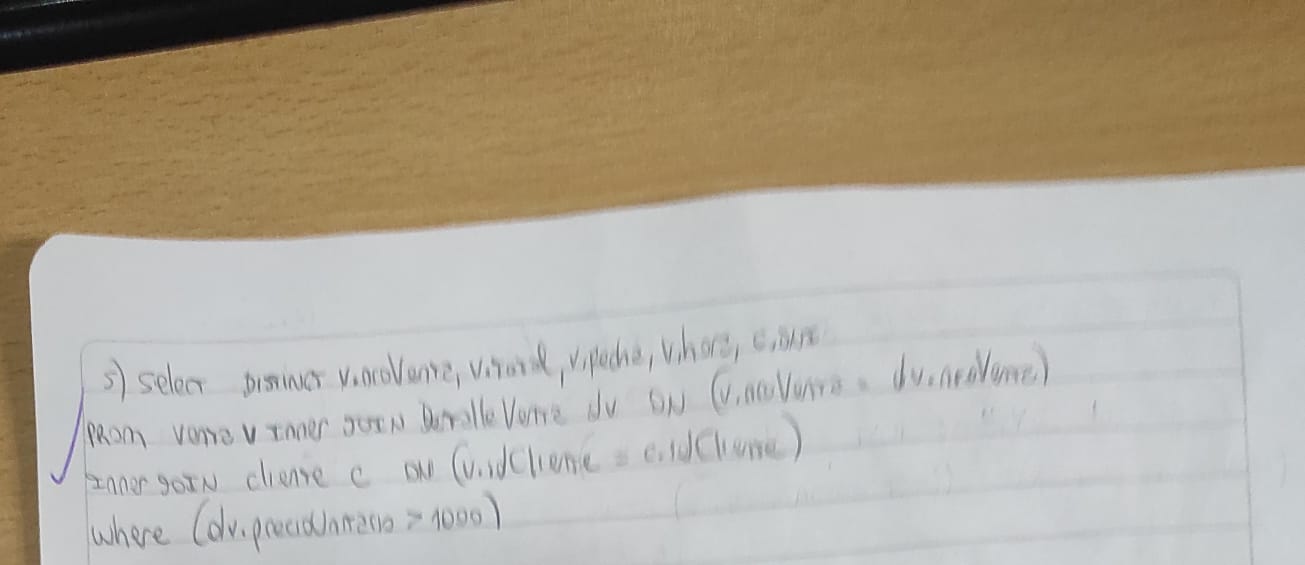 5) select DISTINCT v.nroVenta, v.total, v.fecha, v.hora, c.DNI
FROM venta v inner JOIN DetalleVenta dv ON (v.nroVenta = dv.nroVenta)
inner JOIN cliente c ON (v.idCliente = c.idCliente)
where (dv.precioUnitario > 1000)